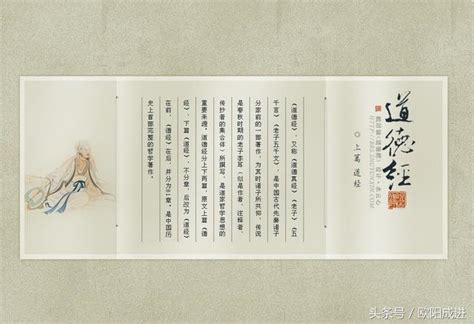 道德经
◎上篇 道经
《道德经》，又称《道德真经》、《老子》、《五
千言》、《老子五千文》，是中国古代先秦诸子
分家前的一部著作，为其时诸子所共仰，传说
是春秋时期的老子李耳（似是作者、注释者、
传抄者的集合体）所撰写，是道家哲学思想的
重要来源。道德经分上下两篇，原文上篇《德
经》、下篇《道经》，不分章，后改为《道经》
在前，《德经》在后，并分为81章，是中国历
史上首部完整的哲学著作。
头条号 / 欧阳成进